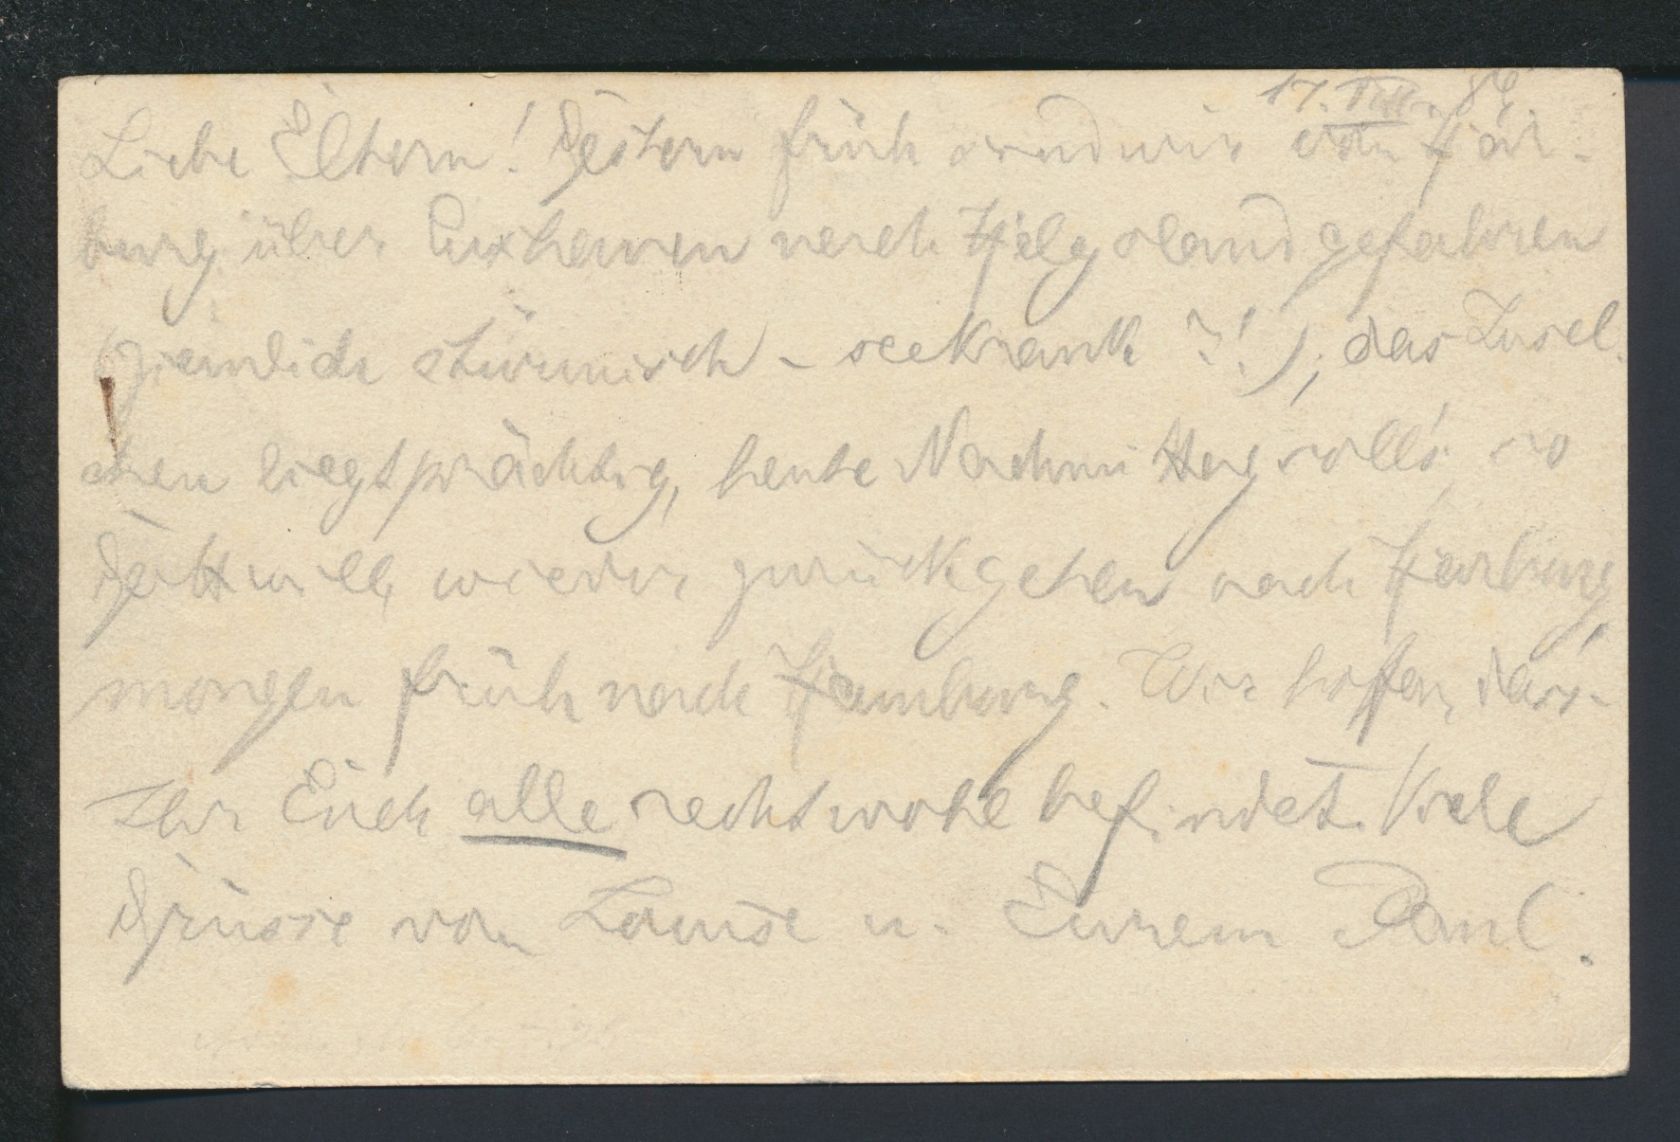 17. VIII. 86
Liebe Eltern! Gestern früh sind wir von Har-
burg über Cuxhaven nach Helgoland gefahren
(ziemlich stürmisch - seekrank ?!), das Insel-
chen liegt prächtig, heute Nachmittag soll's so
Gott will, wieder zurückgehen nach Harburg,
morgen früh nach Hamburg. Wir hoffen, dass
Ihr Euch alle recht wohl befindet. Viele
Grüsse von Louise u. Eurem Paul.